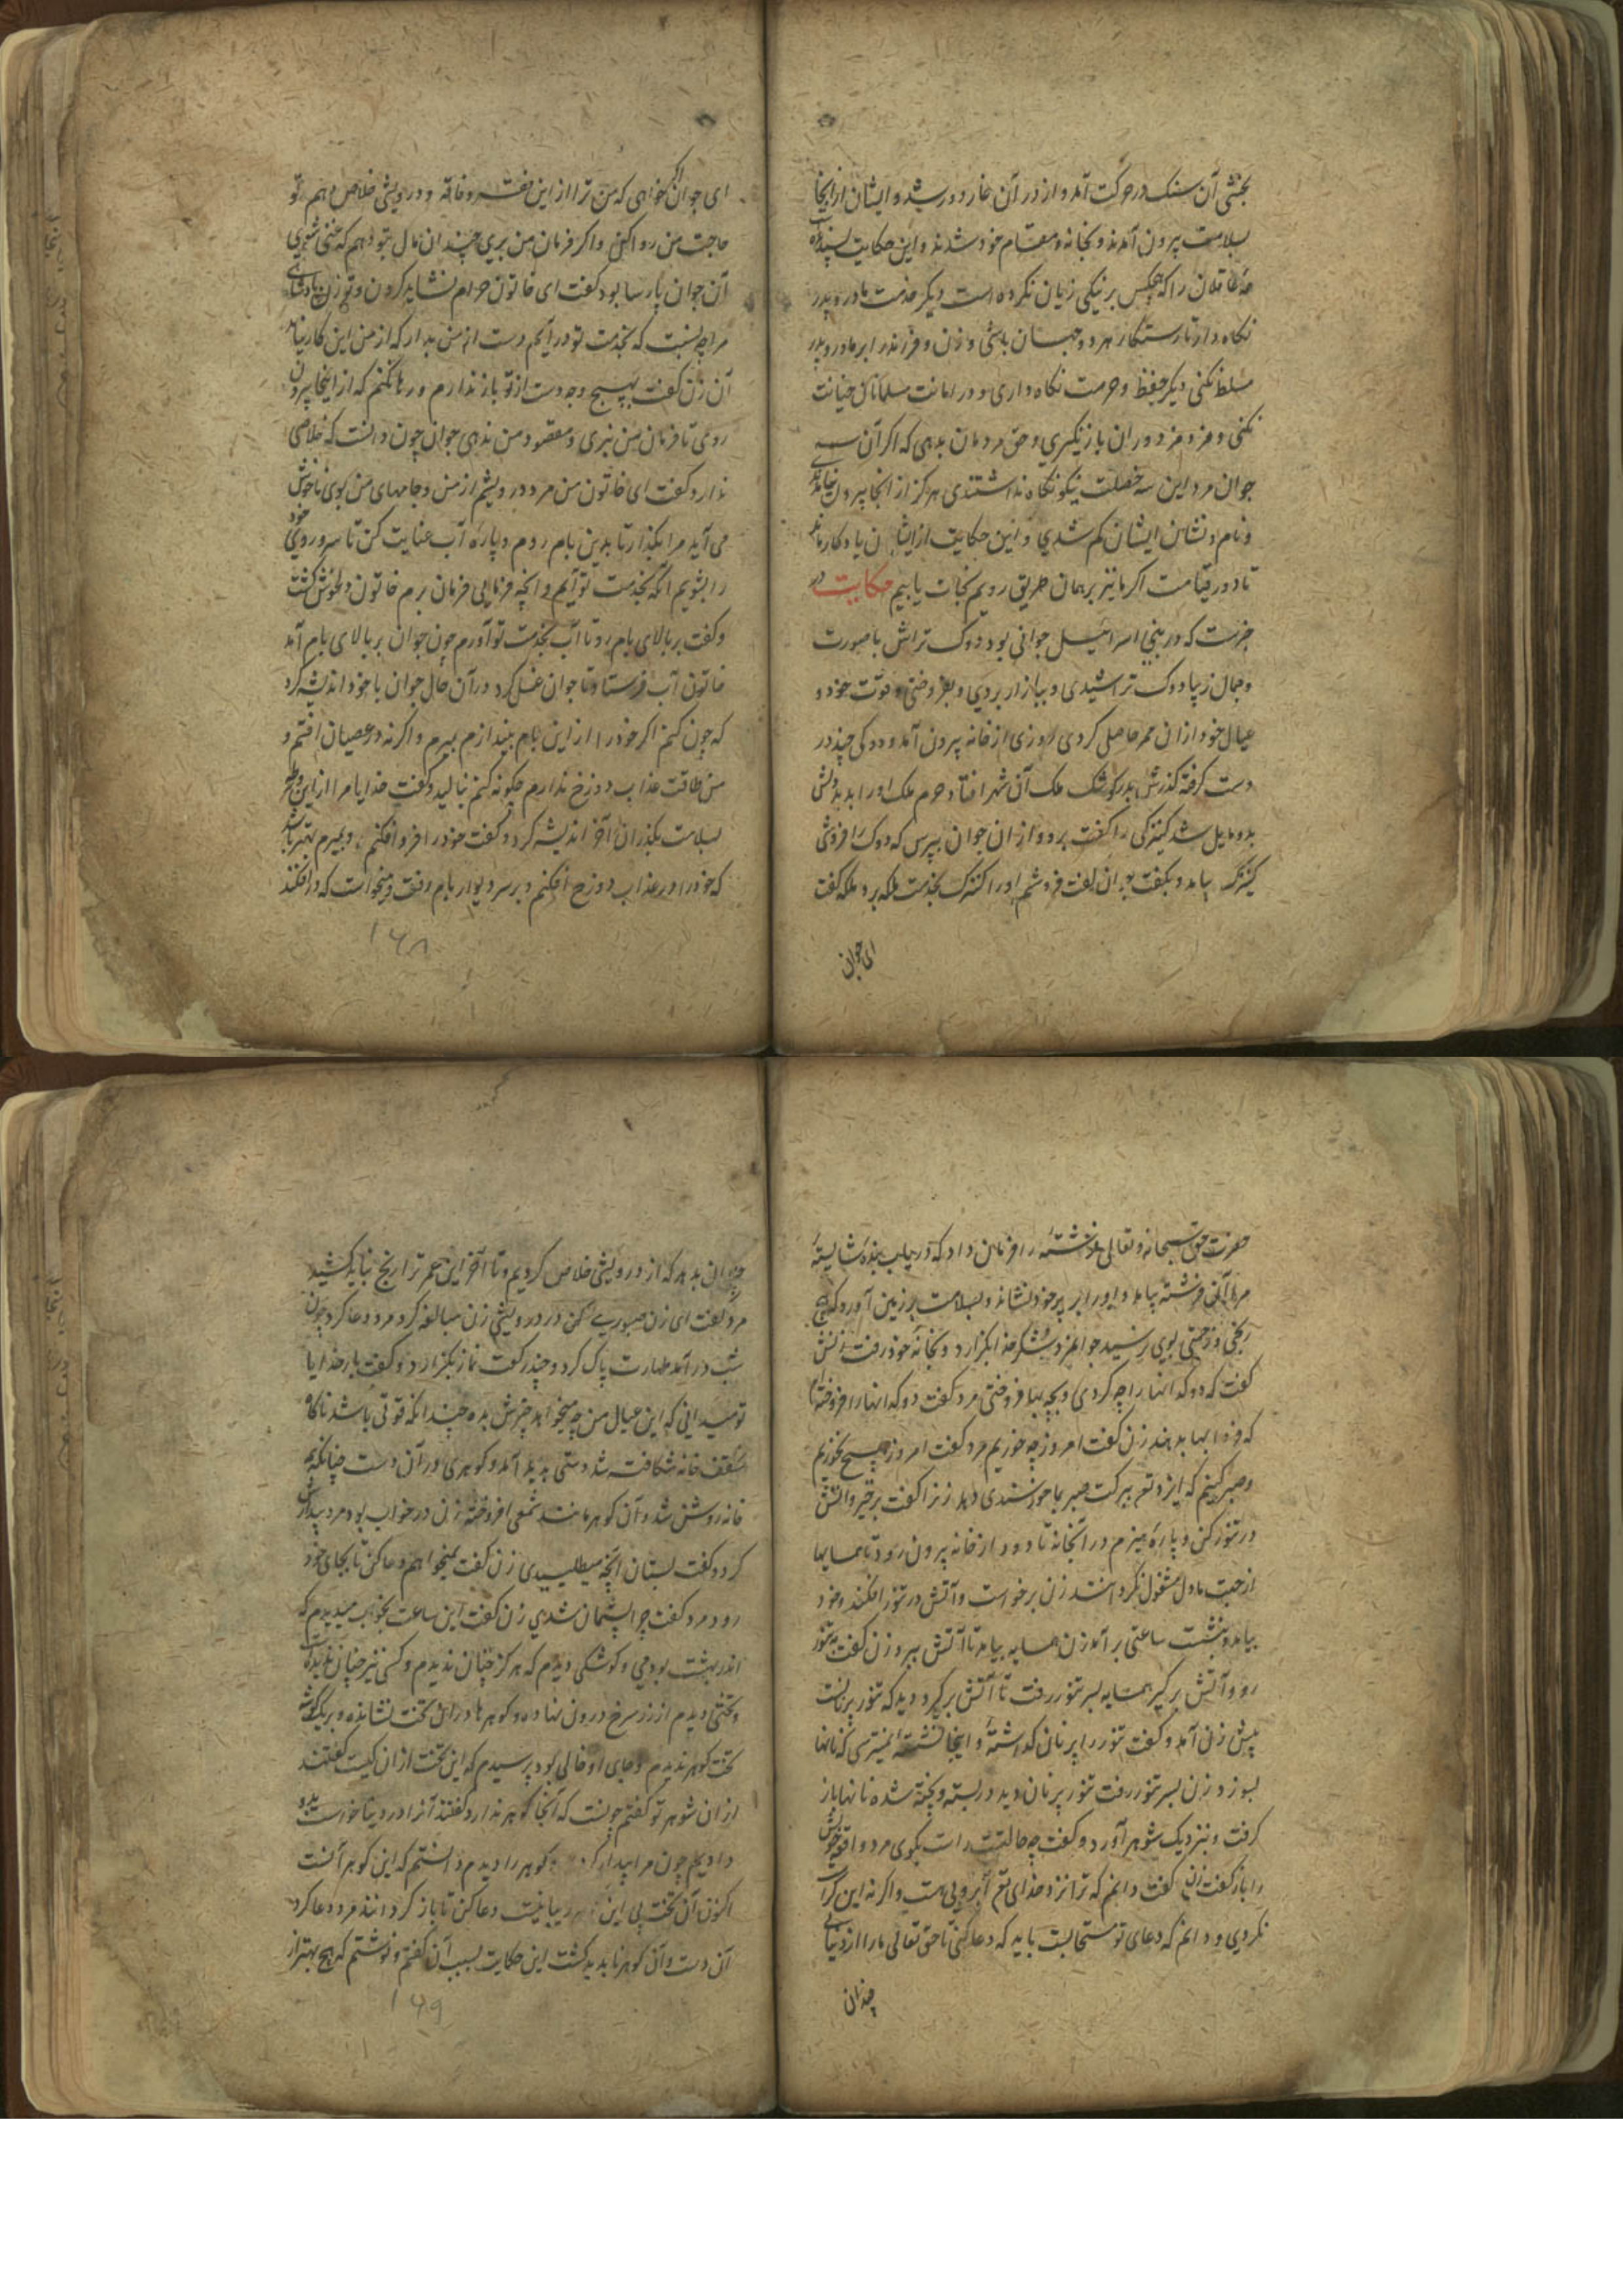 بخشی آن سنک در حرکت آمد و از در آن غار دور شد و ایشان از اینجا
بسلامت بیرون آمدند و بخانه و مقام خود شدند و این حکایت پسندیده
مر عاقلان را که هیچکس بر نیکی زیان نکرده است دیگر خدمت مادر و پدر
نکاه دار تا رستکار هر دو جهان باشی و زن و فرزند را بر مادر و پدر
مسلط نکنی دیگر حفظ و حرمت نکاه داری و در امانت مسلمانان خیانت
نکنی و مزد مزدوران باز نگیری و حق مردمان بدهی که اکر آن سه
جوان مرد این سه خصلت نیکو نکاه نداشتندی هرکز از انجا بیرون نیامدند
و نام و نشان ایشان کم شدی و این حکایت از ایشان یادکار ماند
تا در قیامت اکر ما نیز بر همان طریق رویم نجات یابیم حکایت در
خبرست که در بنی اسرائیل جوانی بود دوک تراش با صورت
و جمال زیبا دوک تراشیدی و ببازار بردی و بفروختی و قوت خود و
عیال خود از ان ممر حاصل کردی روزی از خانه بیرون آمد و دوکی چند در
دست کرفته گذرش بدر کوشک ملک آن شهر افتاد حرم ملک او را بدید دلش
بدو مایل شد کنیزکی را کفت برو و از ان جوان بپرس که دوک را فروشی
کنیزک بیامد و بکفت جوان کفت فروشم او را کنیزک بخدمت ملکه برد ملکه کفت
ای جوان
ای جوان اکر خواهی که من ترا از این فقر و فاقه و درویشی خلاص دهم تو
حاجت من روا کن و اکر فرمان من بری چندان مال بتو دهم که غنی شوی
آن جوان پارسا بود کفت ای خاتون حرام نشاید کردن و تو زن پادشاهی
مرا چه نسبت که بخدمت تو در آیم دست از من بدار که از من این کار نیاید
آن زن کفت بهیچ وجه دست از تو باز ندارم و رها نکنم که از اینجا بیرون
روی تا فرمان من نبری و مقصود من ندهی جوان چون دانست که خلاصی
ندارد کفت ای خاتون من مرد درویشم از من و جامهای من بوی ناخوش
می آید مرا بگذار تا بدین بام روم و پاره آب عنایت کن تا سر و روی خود
را بشویم آنگه بخدمت تو آیم و انچه فرمایی فرمان برم خاتون دلخوش کشت
و کفت بر بالای بام رو تا آب بخدمت تو آورم چون جوان بر بالای بام آمد
خاتون آب فرستاد تا جوان غسل کرد در آن حال جوان با خود اندیشه کرد
که چون کنم اکر خود را از این بام بیندازم بمیرم و اکر نه در عصیان افتم و
من طاقت عذاب دوزخ ندارم چکونه کنم بنالید و کفت خدایا مرا از این ورطه
بسلامت بگذران آخر اندیشه کرد و کفت خود را فرو افکنم و بمیرم بهتر باشد
که خود را در عذاب دوزخ افکنم و بر سر دیوار بام رفت و میخواست که در افکند
۱۶۸
حضرت حق سبحانه و تعالی فرشته را فرمان داد که دریاب بنده شایسته
مرا آن فرشته بیامد و او را بر پر خود نشاند و بسلامت بر زمین آورد که هیچ
رنجی و زحمتی بوی نرسید جوانمرد شکر خدا بکزارد و بخانه خود رفت زنش
کفت که دوکدانها را چه کردی و بچه بها فروختی مرد کفت دوکدانها را فروخته ام
که فردا بها بدهند زن کفت امروز چه خوریم مرد کفت امروز هیچ نخوریم
و صبر کنیم که ایزد تع ببرکت صبر بما خورسندی دهد زن را کفت برخیز و آتش
در تنور کن و پاره هیزم در آنجا نه تا دود از خانه بیرون رود تا همسایها
از جهت ما دل مشغول نکردانند زن برخواست و آتش در تنور افکند و خود
بیامد و بنشست ساعتی بر آمد زن همسایه بیامد تا آتش ببرد زن کفت به تنور
رو و آتش بر کیر همسایه بسر تنور رفت تا آتش برگیرد دید که تنور پر نانست
پیش زن آمد و کفت تنور را پر نان کداشتهٔ و اینجا نشسته نمیترسی که نانها
بسوزد زن بسر تنور رفت تنور پر نان دید در بسته و پخته شده نانها باز
کرفت و بنزدیک شوهر آورد و کفت چه حالتست راست بکوی مرد واقعه خویش
را باز کفت زن کفت دانم که ترا نزد خدای تع آبرویی هست و اکر نه این کرامت
نکردی و دانم که دعای تو مستجابست باید که دعا کنی تا حق تعالی ما را از دنیایی
چندان
چندان بدهد که از درویشی خلاص کردیم و تا آخر این عمر ترا رنج نباید کشید
مرد کفت ای زن صبوری کن در درویشی زن مبالغه کرد مرد دعا کرد چون
شب در آمد طهارت پاک کرد و چند رکعت نماز بکزارد و کفت بار خدایا
تو میدانی که این عیال من چه میخواهد چیزش بده چندانکه قوتی باشد ناکاه
سقف خانه شکافته شد دستی پدید آمد و کوهری در آن دست چنانکه همه
خانه روشن شد و آن کوهر مانند شمعی افروخته زن در خواب بود مرد بیدارش
کرد و کفت بستان آنچه میطلبیدی زن کفت نمیخواهم دعا کن تا بجای خود
رود مرد کفت چرا پشیمان شدی زن کفت این ساعت بخواب میدیدم که
اندر بهشت بودمی و کوشکی دیدم که هرکز چنان ندیدم و کسی نیز چنان ندیده است
و تختی دیدم از زر سرخ درون نهاده و کوهرها در آن تخت نشانده و بر یک کوشه
تخت کوهر ندیدم و جای او خالی بود پرسیدم که این تخت از ان کیست کفتند
از ان شوهر تو کفتم چونست که آنجا کوهر ندارد کفتند آنرا در دنیا خواست بدو
دادیم چون مرا بیدار کردی کوهر را دیدم دانستم که این کوهر آنست
اکنون آن تخت بی این زیبا نیست دعا کن تا باز کردانند مرد دعا کرد
آن دست و آن کوهر ناپدید کشت این حکایت بسبب آن کفتم و نوشتم که هیچ بهتر از
۱۶۹